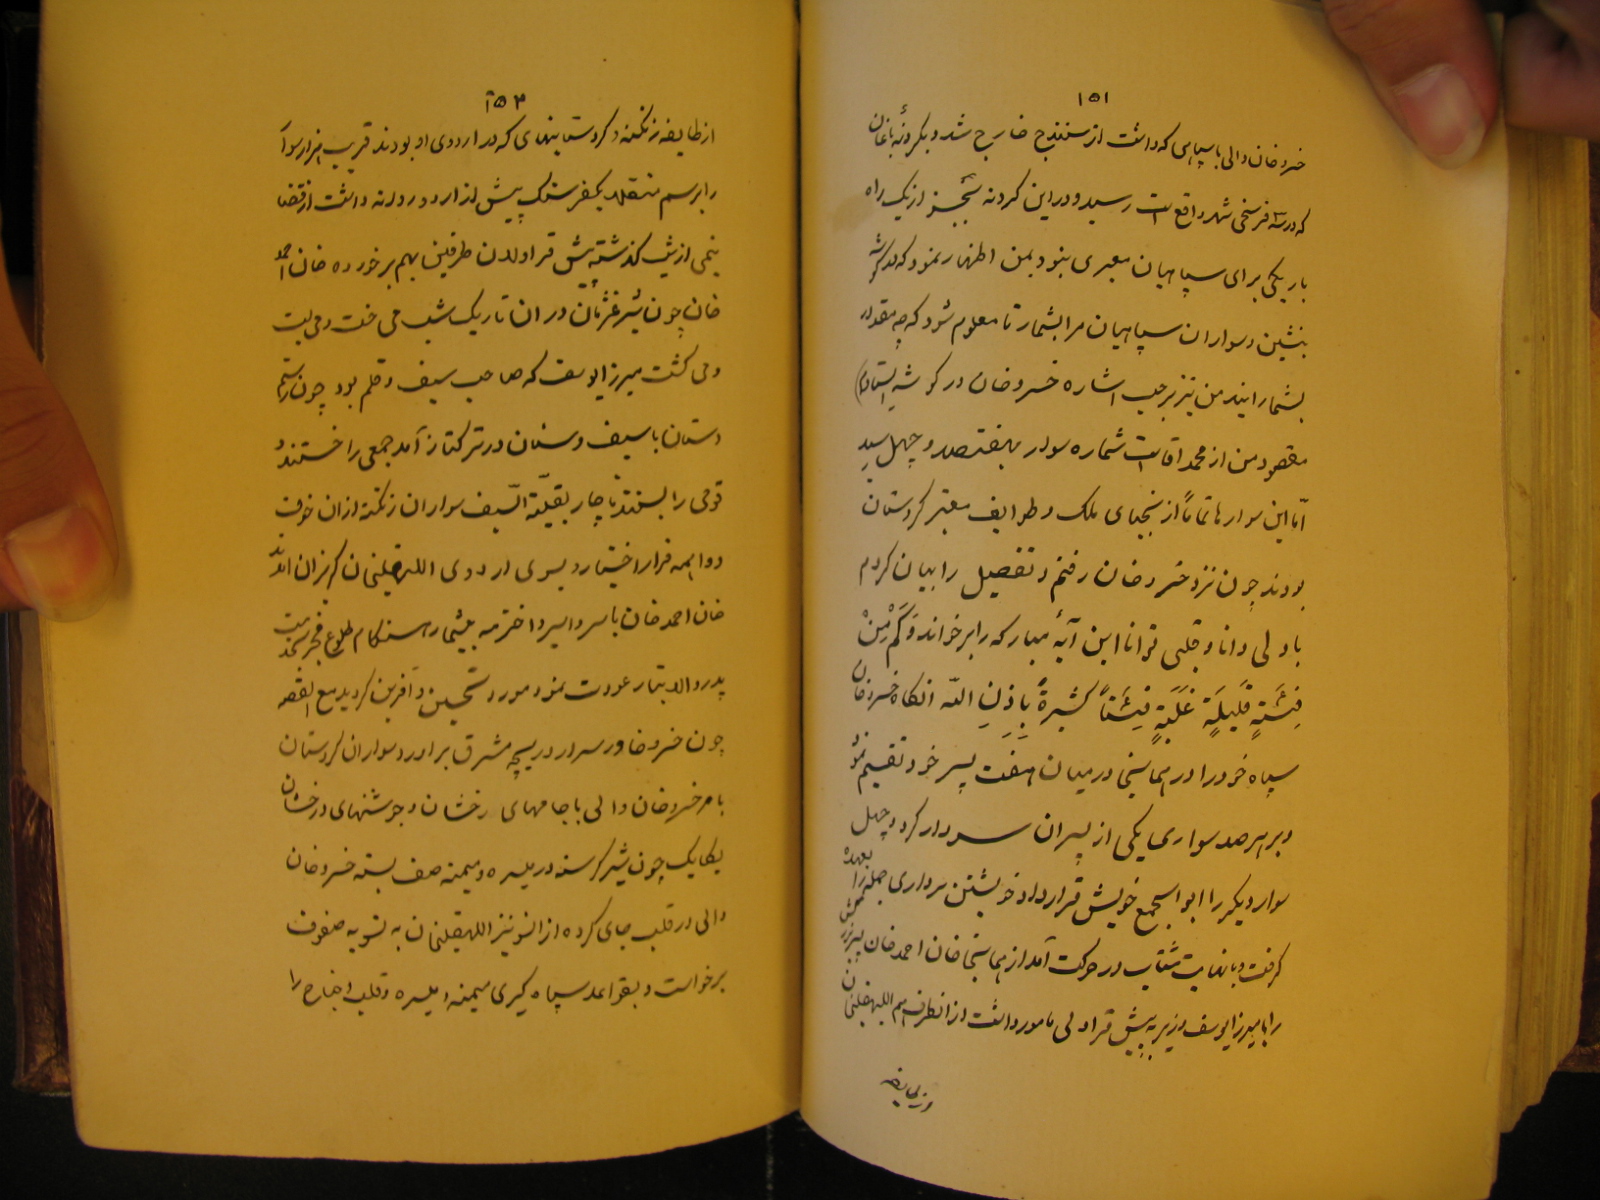 ۱۵۱
خسروخان والی با سپاهی که داشت از سنندج خارج شد و بگردنهٔ باغان
که در سه فرسخی شهر واقع است رسید و در این گردنه بجز از یک راه
باریکی برای سپاهیان معبری نبود بمن اظهار نمود که در گوشه
بنشین و سواران سپاهیان مرا بشمار تا معلوم شود که چه مقدار
بشمار ایند من نیز بر حسب اشاره خسروخان در گوشه ایستادم
مقصود من از محمد اقا است شماره سوار بهفتصد و چهل رسید
امّا این سوارها تماماً از نجبای ملک و طوایف معتبر کردستان
بودند چون نزد خسروخان رفتم و تفصیل را بیان کردم
با دلی دانا و قلبی توانا این آیهٔ مبارکه را برخواند وَکَم مِنْ
فِئَتٍهٍ قَلیلَةٍ غَلَبَةٍ فِئَتاً کَثیرةً بِاِذنِ اللّه انگاه خسروخان
سپاه خود را در همانجا در میان هفت پسر خود تقسیم نمود
و بر هر صد سواری یکی از پسران سردار کرد و چهل
سوار دیگر را ابوابجمع خویش قرار داد و خویشتن سرداری جمله را بعهده
گرفت و با نهایت شتاب در حرکت آمد از همانجا خان احمد خان پسر
را با میرزا یوسف وزیر به پیش قراولی مامور داشت از انطرف هم اللهقلیخان
از طایفه
۱۵۲
از طایفه زنگنه و کردستانیهای که در اردوی او بودند قریب هزار سوار
را برسم منقلا یکفرسنگ پیش از اردو روانه داشت از قضا
نیمی از شب گذشته پیش قراولان طرفین بهم برخورده خان احمد
خان چون شیر غژمان در ان تاریک شب می خست و می بست
و می کشت میرزا یوسف که صاحب سیف و قلم بود چون رستم
دستان با سیف و سنان در ترکتاز آمد جمعی را خستند و
قومی را بستند ناچار بقیّة السّیف سواران زنگنه از ان خوف
و واهمه فرار اختیار و بسوی اردوی اللهقلیخان گریزان شدند
خان احمد خان با سر و اسیر و اخترمه بیشمار هنگام طلوع فجر بخدمت
پدر والاتبار عودت نمود مورد تحسین و آفرین گردید مع القصه
چون خسرو خاور سر از دریچه مشرق براورد سواران کردستان
بامر خسروخان والی با جامهای رخشان و جوشنهای درخشان
یکایک چون شیر گرسنه در میسره و میمنه صف بسته خسروخان
والی در قلب جای کرده از انسو نیز اللهقلیخان به تسویه صفوف
برخواست و بقواعد سپاه گیری میمنه و میسره و قلب و جناح را